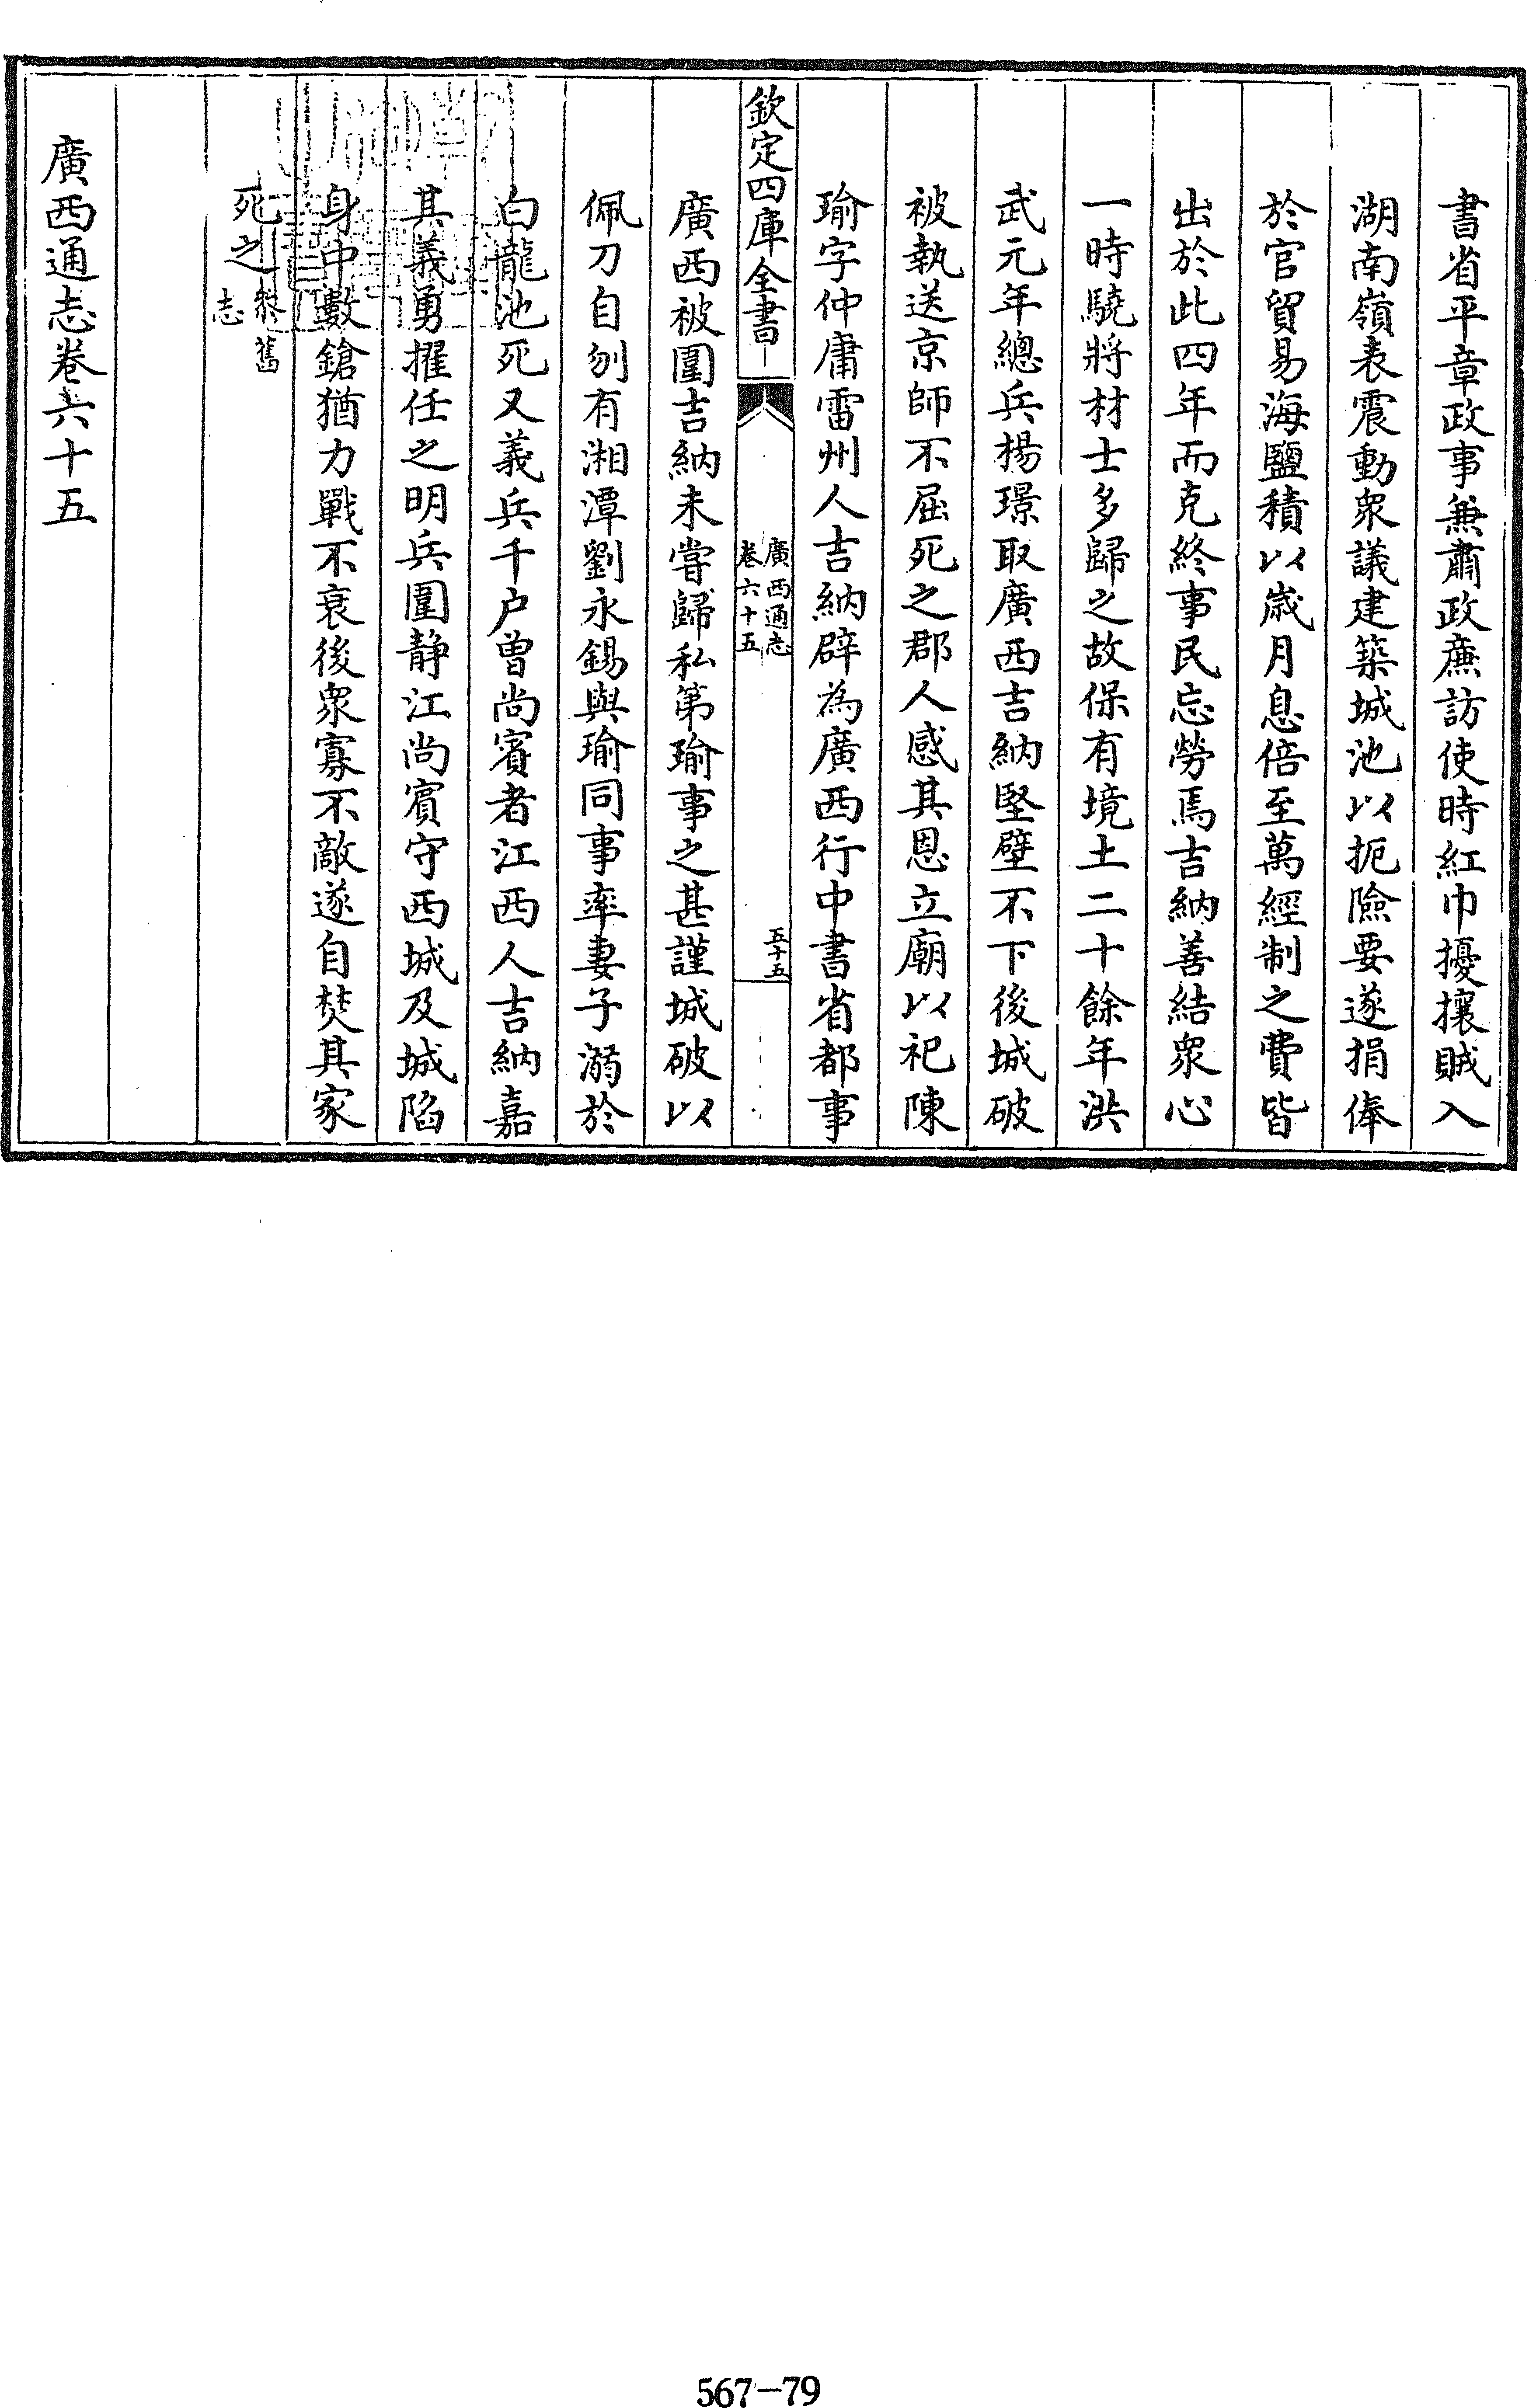 書省平章政事兼肅政廉訪使時紅巾擾攘賊入
湖南嶺表震動衆議建築城池以扼險要遂捐俸
於官貿易海鹽積以歲月息倍至萬經制之費皆
出於此四年而克終事民忘勞焉吉納善結衆心
一時驍將材士多歸之故保有境土二十餘年洪
武元年總兵楊璟取廣西吉納堅壁不下後城破
被執送京師不屈死之郡人感其恩立廟以祀陳
瑜字仲庸雷州人吉納辟為廣西行中書省都事
欽定四庫全書
廣西通志
卷六十五
五十五
廣西被圍吉納未嘗歸私第瑜事之甚謹城破以
佩刀自刎有湘潭劉永錫與瑜同事率妻子溺於
白龍池死又義兵千户曾尚賓者江西人吉納嘉
其義勇擢任之明兵圍静江尚賓守西城及城陷
身中數鎗猶力戰不衰後衆寡不敵遂自焚其家
死之
舊
志
廣西通志卷六十五
567-79